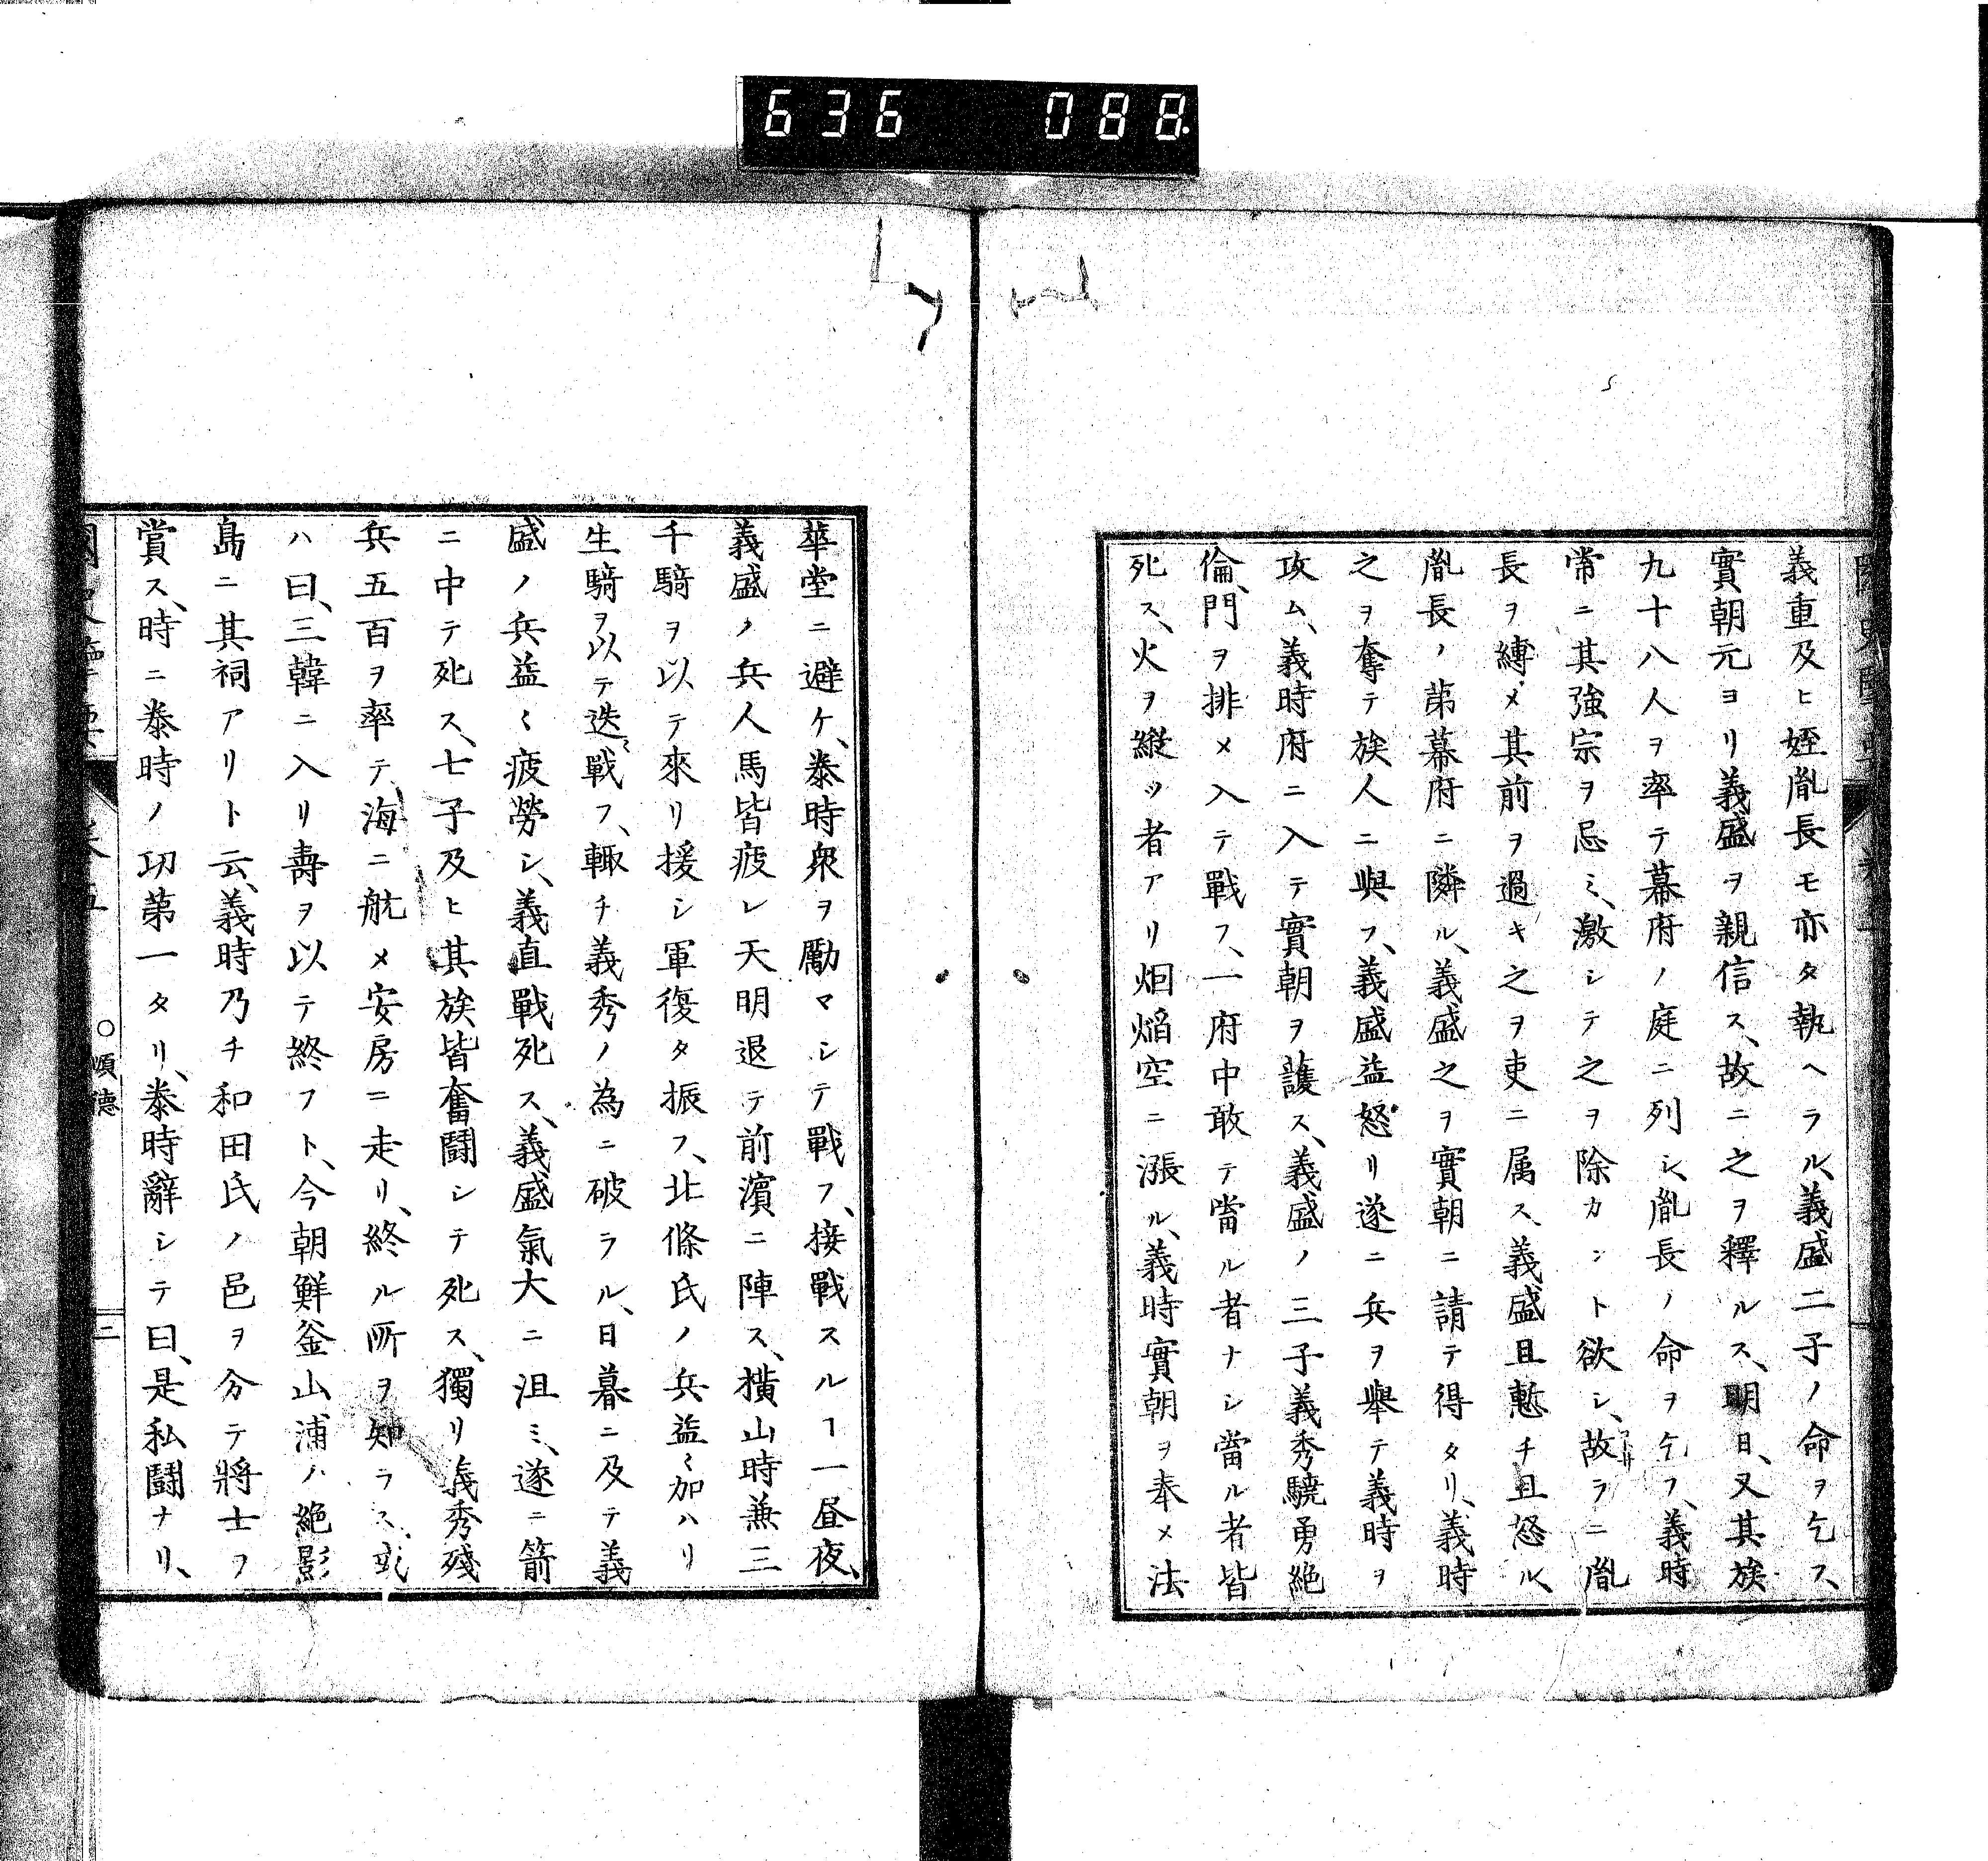 636 088.
義重及ヒ姪胤長モ亦タ執ヘラル、義盛二子ノ命ヲ乞フ、
實朝元ヨリ義盛ヲ親信ス、故ニ之ヲ釋ルス、明日、又其族
九十八人ヲ率テ幕府ノ庭ニ列シ、胤長ノ命ヲ乞フ、義時
常ニ其強宗ヲ忌ミ、激シテ之ヲ除カント欲シ、故ラニ胤
長ヲ縛メ其前ヲ過キ之ヲ吏ニ属ス、義盛且慙チ且怒ル、
胤長ノ第幕府ニ隣ル、義盛之ヲ實朝ニ請テ得タリ、義時
之ヲ奪テ族人ニ與フ、義盛益怒リ遂ニ兵ヲ舉テ義時ヲ
攻ム、義時府ニ入テ實朝ヲ護ス、義盛ノ三子義秀驍勇絶
倫、門ヲ排メ入テ戰フ、一府中敢テ當ル者ナシ當ル者皆
死ス、火ヲ縱ツ者アリ烟焔空ニ漲ル、義時實朝ヲ奉メ法
華堂ニ避ケ、泰時衆ヲ勵マシテ戰フ、接戰スルヿ一昼夜、
義盛ノ兵人馬皆疲レ天明退テ前濱ニ陣ス、横山時兼三
千騎ヲ以テ來リ援シ軍復タ振フ、北條氏ノ兵益〻加ハリ
生騎ヲ以テ迭〻戰フ、輙チ義秀ノ為ニ破ラル、日暮ニ及テ義
盛ノ兵益〻疲勞シ、義直戰死ス、義盛氣大ニ沮ミ、遂ニ箭
ニ中テ死ス、七子及ヒ其族皆奮鬪シテ死ス、獨リ義秀殘
兵五百ヲ率テ、海ニ航メ安房ニ走リ、終ル所ヲ知ラス、或
ハ曰、三韓ニ入リ壽ヲ以テ終フト、今朝鮮釜山浦ハ絶影
島ニ其祠アリト云、義時乃チ和田氏ノ邑ヲ分テ將士ヲ
賞ス、時ニ泰時ノ功第一タリ、泰時辭シテ曰、是私鬪ナリ、
○順德
三